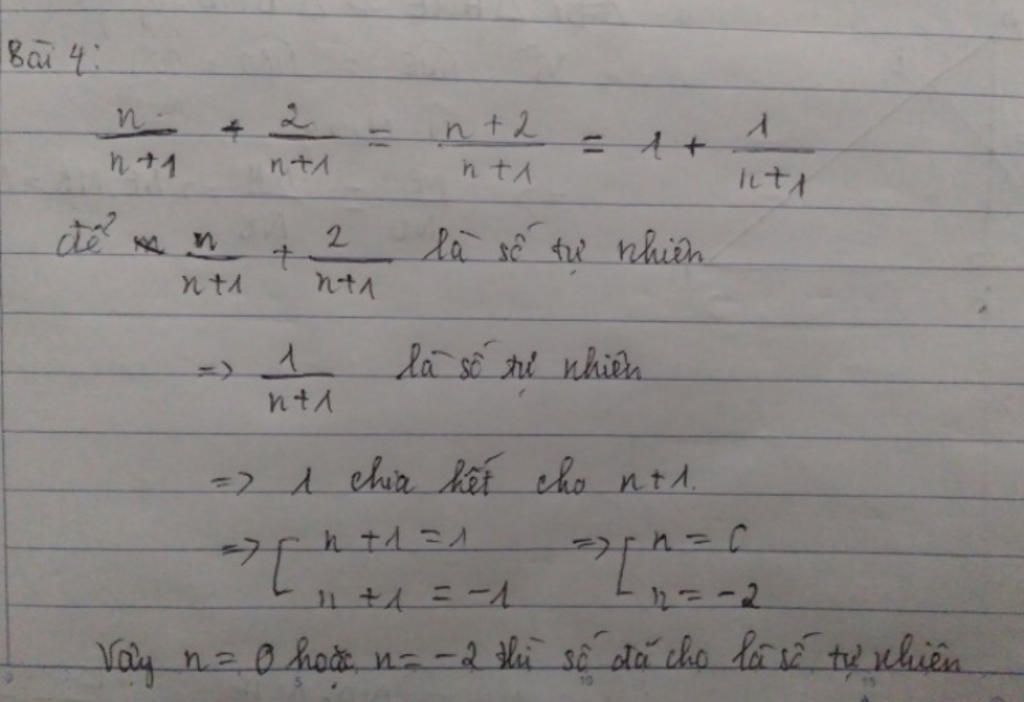 Bài 4:
n/(n+1) + 2/(n+1) = (n+2)/(n+1) = 1 + 1/(n+1)
để n/(n+1) + 2/(n+1) là số tự nhiên
=> 1/(n+1) là số tự nhiên
=> 1 chia hết cho n+1.
=> [ n+1 = 1 => [ n = 0
n+1 = -1 n = -2
Vậy n = 0 hoặc n = -2 thì số đã cho là số tự nhiên